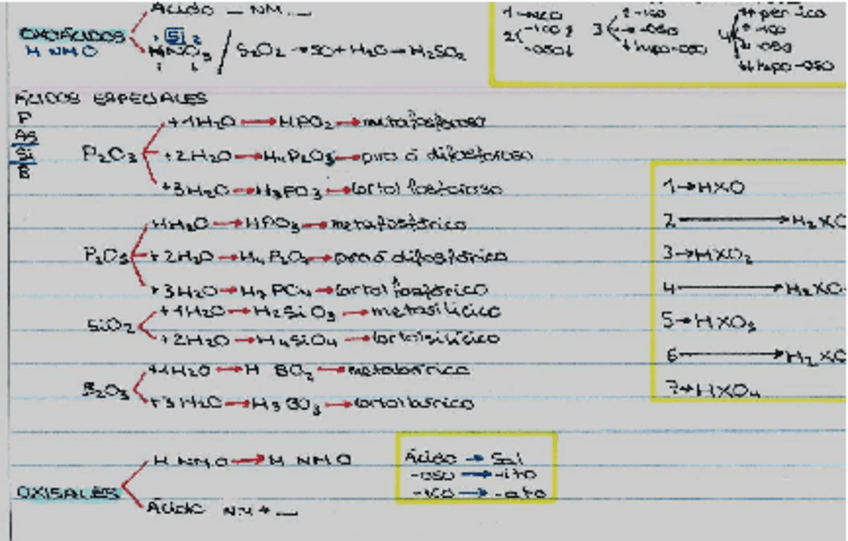 Ácido _ NM _
OXOÁCIDOS
H NMO
S₂O₂ → SO + H₂O → H₂SO₂
1 -ICO
2 -ICO ↑
-OSO ↓
3 ↑ -ICO
→ -OSO
↓ hipo-OSO
4 ↑↑ per-ICO
↑ -ICO
↓ -OSO
↓↓ hipo-OSO
ÁCIDOS ESPECIALES
P
As
Si
B
P₂O₃
+1H₂O → HPO₂ → metafosforoso
+2H₂O → H₄P₂O₅ → piro ó difosforoso
+3H₂O → H₃PO₃ → (orto) fosforoso
P₂O₅
+1H₂O → HPO₃ → metafosfórico
+2H₂O → H₄P₂O₇ → piro ó difosfórico
+3H₂O → H₃PO₄ → (orto) fosfórico
SiO₂
+1H₂O → H₂SiO₃ → metasilícico
+2H₂O → H₄SiO₄ → (orto)silícico
B₂O₃
+1H₂O → H BO₂ → metabórico
+3H₂O → H₃BO₃ → (orto)bórico
1 → HXO
2 → H₂XO
3 → HXO₂
4 → H₂XO
5 → HXO₃
6 → H₂XO
7 → HXO₄
OXISALES
H NMO → M NMO
Ácido NM + _
Ácido → Sal
-oso → -ito
-ico → -ato